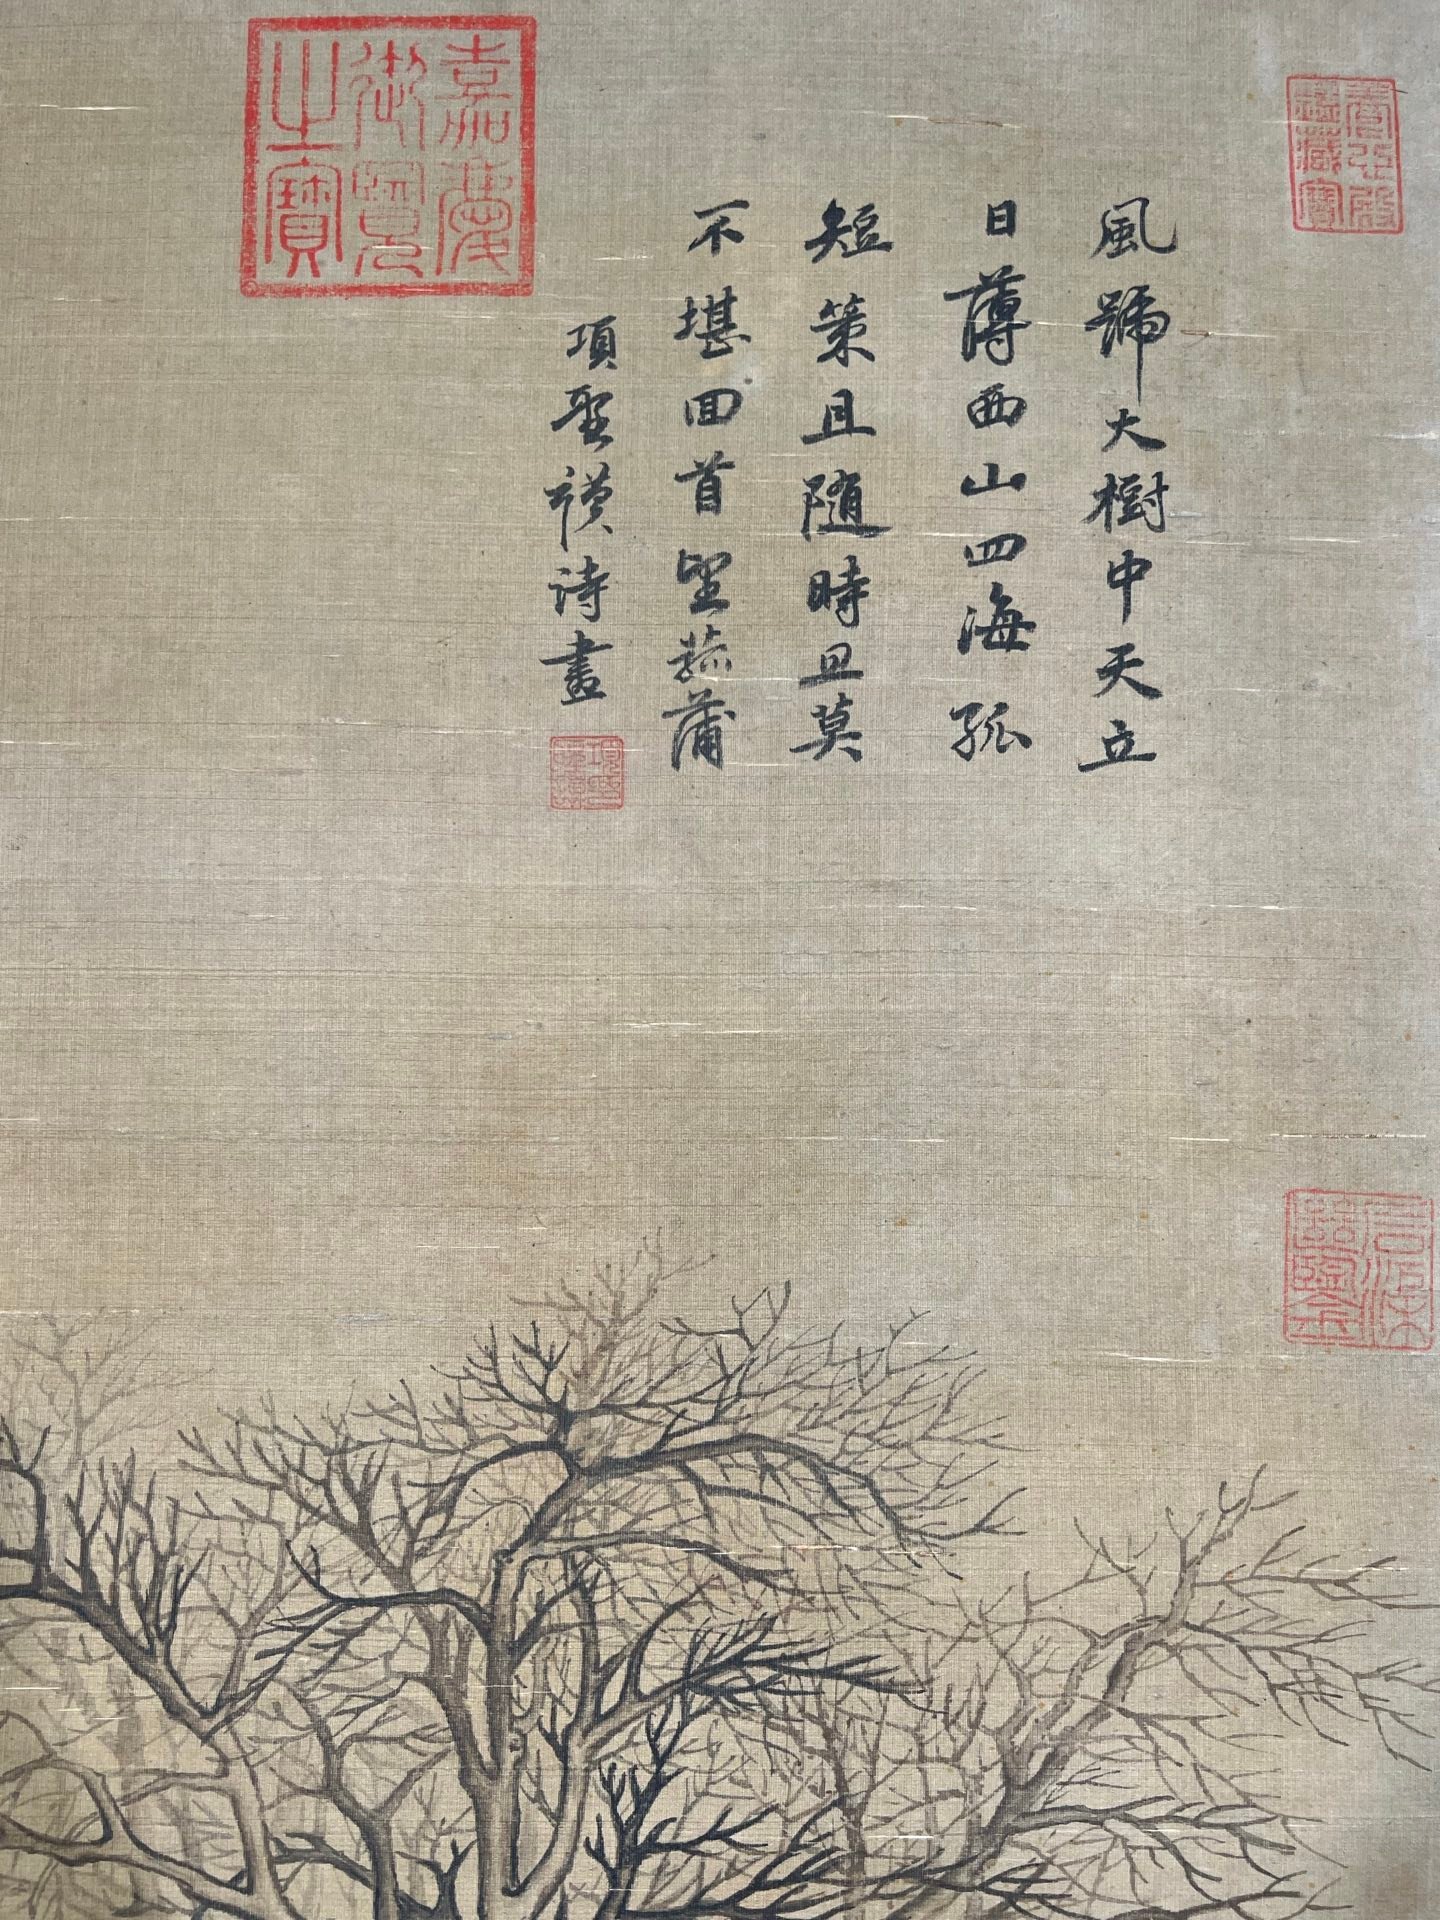 風號大樹中天立
日薄西山四海孤
短策且隨時旦莫
不堪回首望菰蒲
項聖謨詩畫
嘉慶
御覽
之寶